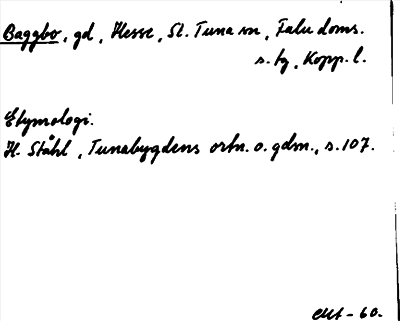 Baggbo, gd, Hesse, St. Tuna sn, Falu doms.
s. tg, Kopp. l.
Etymologi.
H. Ståhl, Tunabygdens ortn. o. gdn., s. 107.
-60.